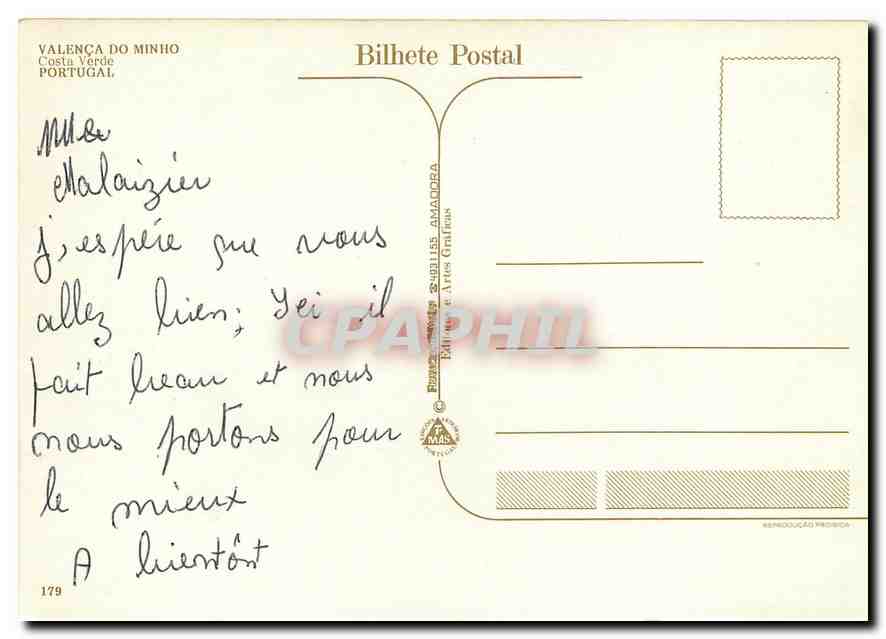 VALENÇA DO MINHO
Costa Verde
PORTUGAL
Bilhete Postal
Malaizier
j'espére que vous
allez bien; Ici il
fait beau et nous
nous portons pour
le mieux
A bientôst
179
4931155 AMADORA
Editora e Artes Gráficas
CPAPHIL
PORTUGAL
REPRODUÇÃO PROIBIDA